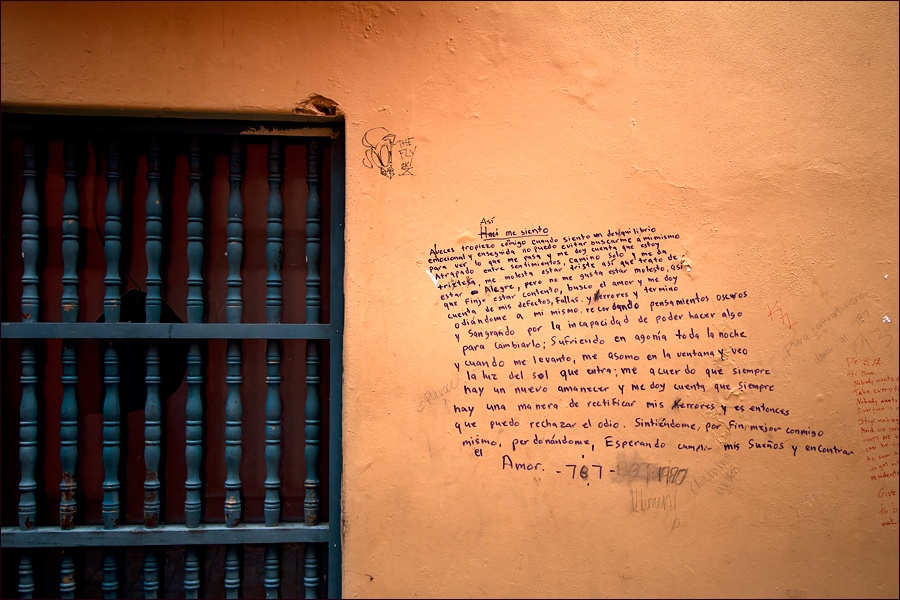 THE
FLY
Así
Haci me siento
Aveces tropiezo cómigo cuando siento un desiquilibrio
emocional y enseguida no puedo evitar buscarme a mi mismo
para ver lo que me pasa y me doy cuenta que estoy
Atrapado entre sentimientos, camino solo y me da
tristesa, me molesta estar triste así que trato de
estar Alegre, pero no me gusta estar molesto, así
que finjo estar contento, busco el amor y me doy
cuenta de mis defectos, fallas, y herrores y termino
odiándome a mi mismo, recordando pensamientos oscuros
y Sangrando por la incapacidad de poder hacer algo
para cambiarlo; Sufriendo en agonía toda la noche
y cuando me levanto, me asomo en la ventana y veo
la luz del sol que entra; me acuerdo que siempre
hay un nuevo amanecer y me doy cuenta que siempre
hay una manera de rectificar mis herrores y es entonces
que puedo rechazar el odio. Sintiéndome, por fin, mejor conmigo
mismo, perdonándome, Esperando cumplir mis Sueños y encontrar
el
Amor. -787-
1980
Nobody wants
Take every
Nobody wants
Everyone is
Stop making
Give
to